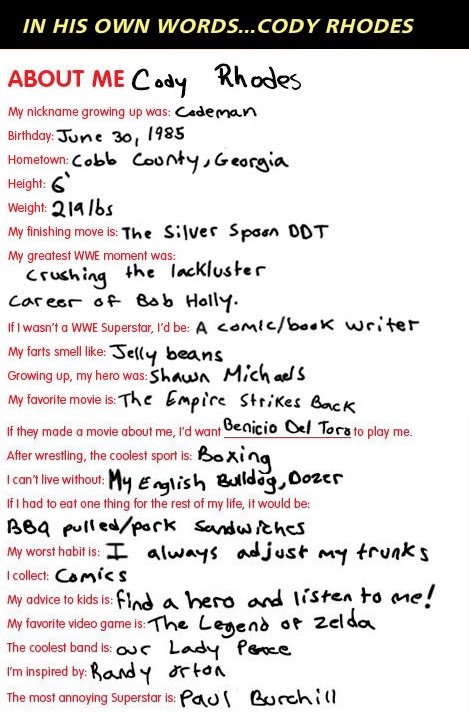 IN HIS OWN WORDS...CODY RHODES
ABOUT ME Cody Rhodes
My nickname growing up was: Codeman
Birthday: June 30, 1985
Hometown: Cobb County, Georgia
Height: 6'
Weight: 219 lbs
My finishing move is: The Silver Spoon DDT
My greatest WWE moment was:
Crushing the lackluster
career of Bob Holly.
If I wasn't a WWE Superstar, I'd be: A comic/book writer
My farts smell like: Jelly beans
Growing up, my hero was: Shawn Michaels
My favorite movie is: The Empire Strikes Back
If they made a movie about me, I'd want Benicio Del Toro to play me.
After wrestling, the coolest sport is: Boxing
I can't live without: My English Bulldog, Dozer
If I had to eat one thing for the rest of my life, it would be:
BBQ pulled/pork sandwiches
My worst habit is: I always adjust my trunks
I collect: Comics
My advice to kids is: find a hero and listen to me!
My favorite video game is: The Legend of Zelda
The coolest band is: Our Lady Peace
I'm inspired by: Randy Orton
The most annoying Superstar is: Paul Burchill